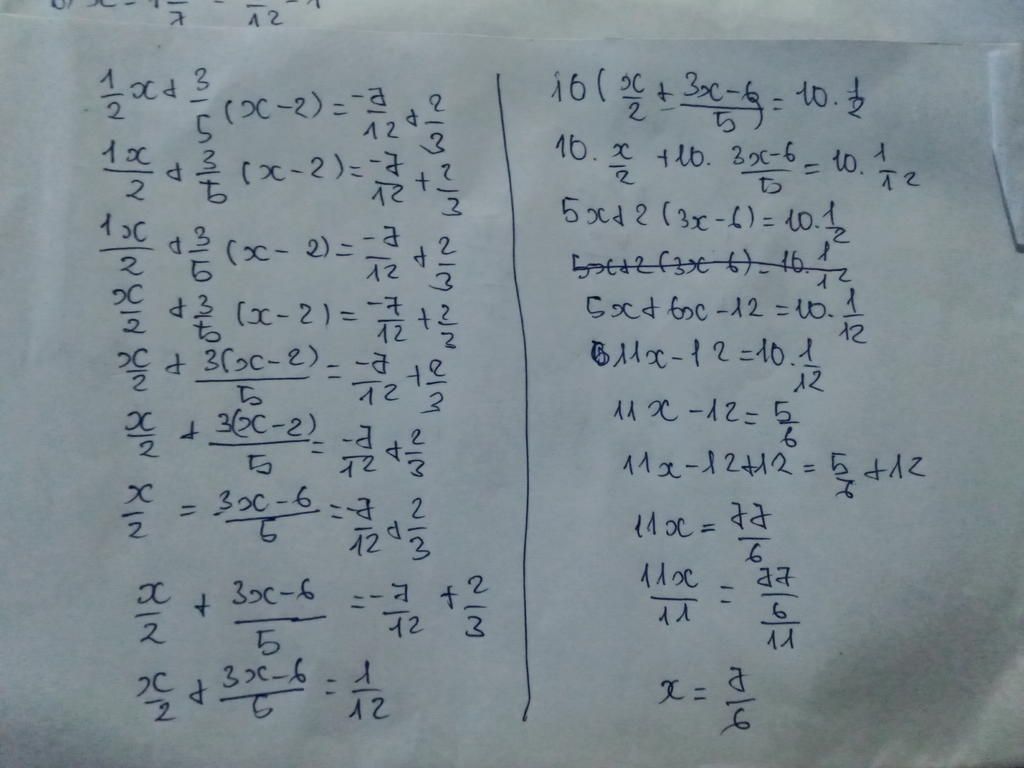 1/2 x + 3/5 (x-2) = -7/12 + 2/3
1x/2 + 3/5 (x-2) = -7/12 + 2/3
1x/2 + 3/5 (x-2) = -7/12 + 2/3
x/2 + 3/5 (x-2) = -7/12 + 2/3
x/2 + 3(x-2)/5 = -7/12 + 2/3
x/2 + 3(x-2)/5 = -7/12 + 2/3
x/2 = 3x-6/5 = -7/12 + 2/3
x/2 + 3x-6/5 = -7/12 + 2/3
x/2 + 3x-6/5 = 1/12
10 (x/2 + 3x-6/5) = 10 · 1/2
10 · x/2 + 10 · 3x-6/5 = 10 · 1/12
5x + 2 (3x-6) = 10 · 1/2
5x + 2 (3x-6) = 10 · 1/12
5x + 6x - 12 = 10 · 1/12
11x - 12 = 10 · 1/12
11x - 12 = 5/6
11x - 12 + 12 = 5/6 + 12
11x = 77/6
11x/11 = 77/6/11
x = 7/6